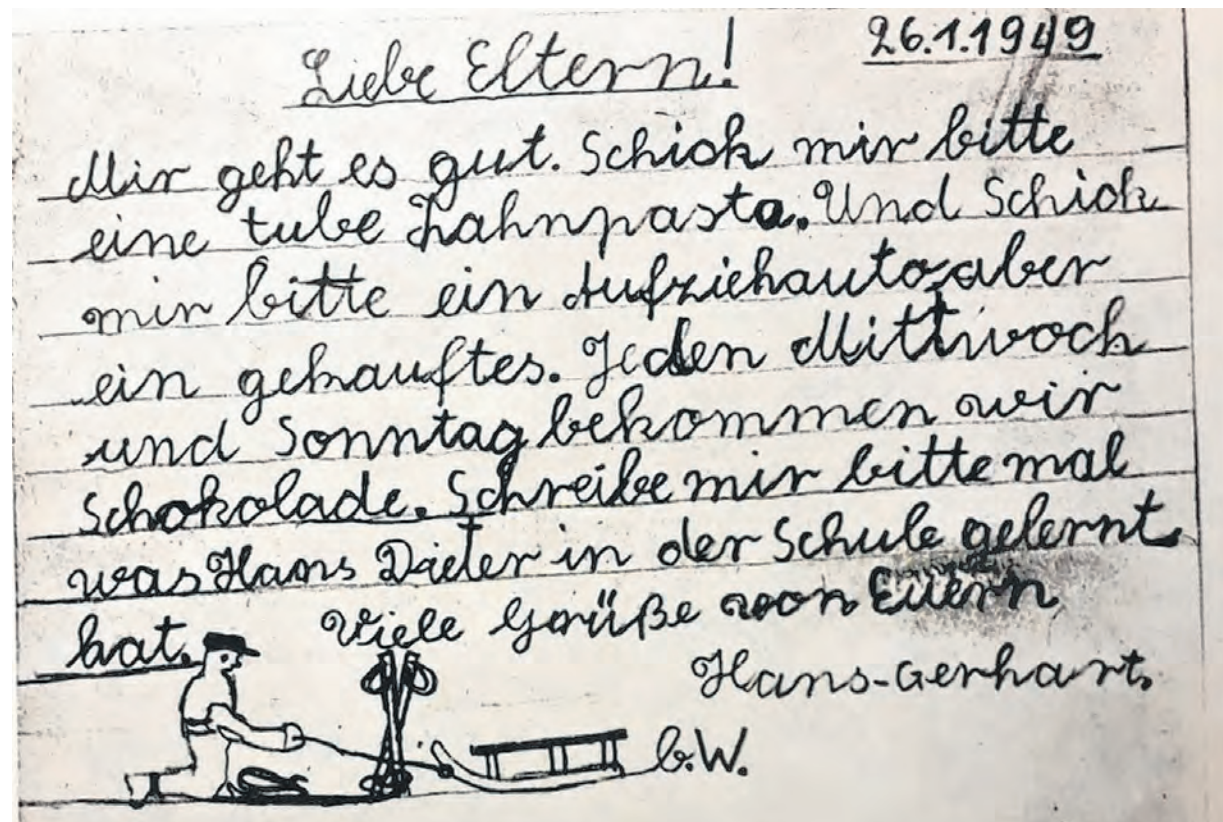 26.1.1949
Liebe Eltern!
Mir geht es gut. Schick mir bitte
eine tube Zahnpasta. Und Schick
mir bitte ein Aufziehauto aber
ein gekauftes. Jeden Mittwoch
und Sonntag bekommen wir
Schokolade. Schreibe mir bitte mal
was Hans Dieter in der Schule gelernt
hat. Viele Grüße von Euern
Hans-Gerhart.
b.W.